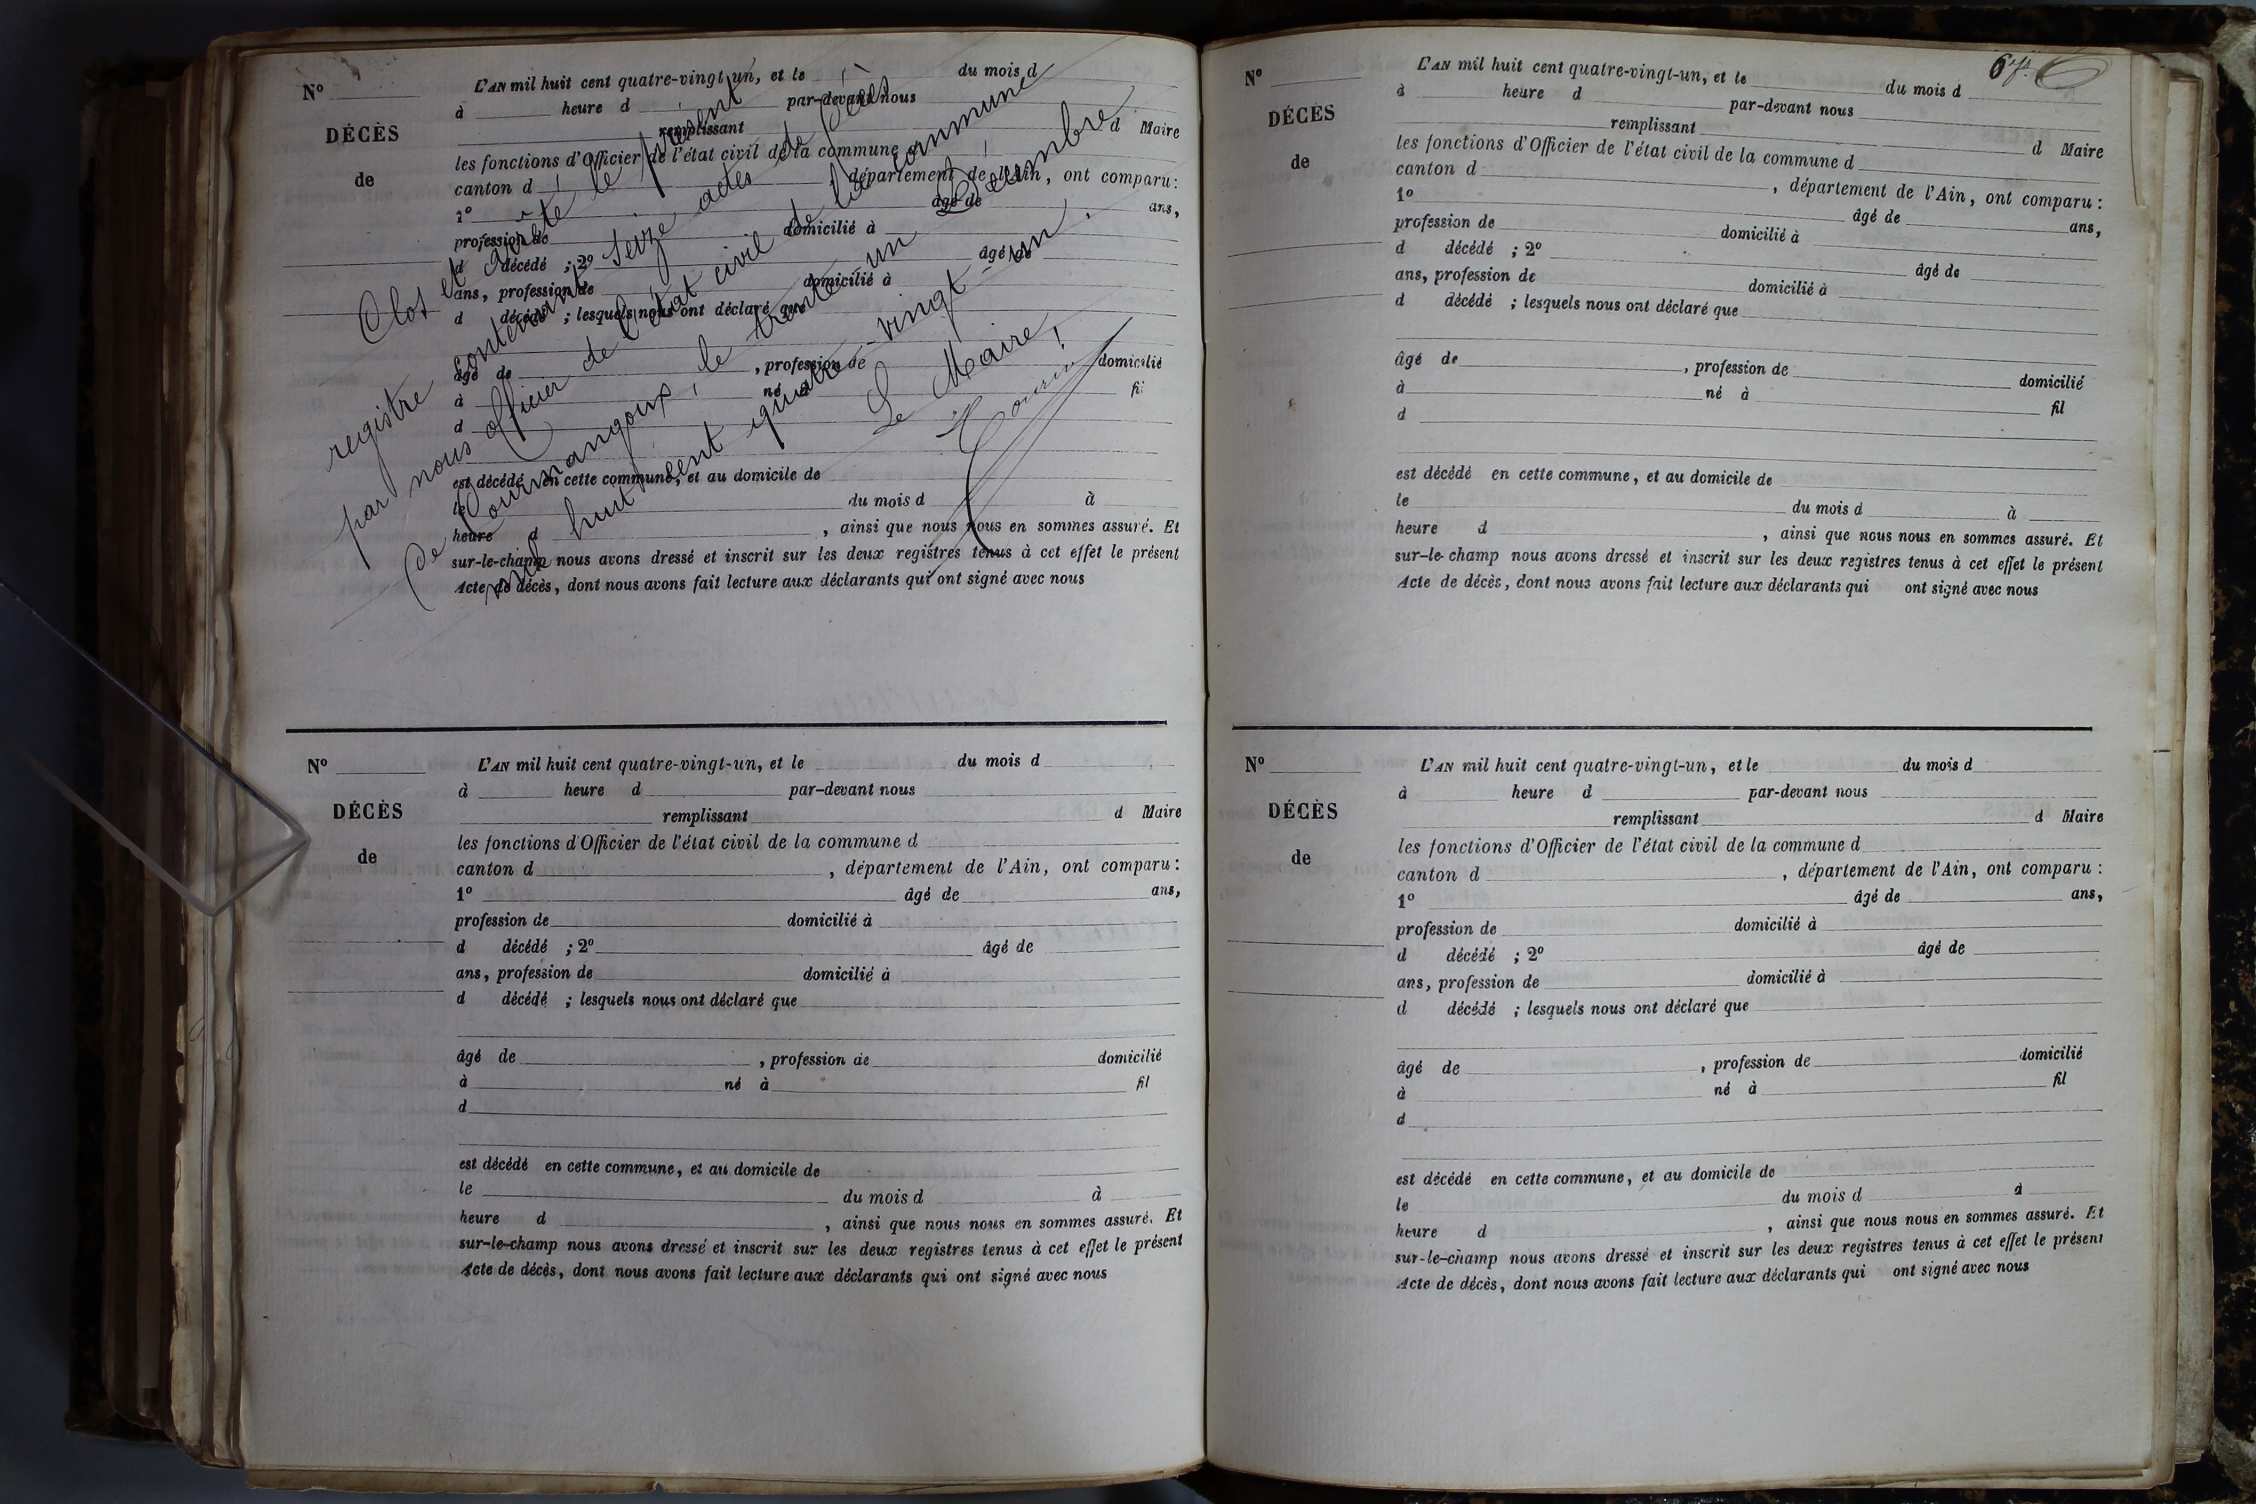 Nº
DÉCÈS
de
L'AN mil huit cent quatre-vingt-un, et le du mois d
à heure d par-devant nous
remplissant d Maire
les fonctions d'Officier de l'état civil de la commune d
canton d , département de l'Ain, ont comparu :
1º âgé de ans,
profession de domicilié à
d décédé ; 2º âgé de
ans, profession de domicilié à
d décédé ; lesquels nous ont déclaré que
âgé de , profession de domicilié
à né à fil
d
est décédé en cette commune, et au domicile de
le du mois d à
heure d , ainsi que nous nous en sommes assuré. Et
sur-le-champ nous avons dressé et inscrit sur les deux registres tenus à cet effet le présent
Acte de décès, dont nous avons fait lecture aux déclarants qui ont signé avec nous
Clos et arrêté le présent
registre contenant seize actes de décès
par nous officier de l'état civil de la commune
de Courmangoux, le trente un Décembre
mil huit cent quatre-vingt-un.
Le Maire,
Nº
DÉCÈS
de
L'AN mil huit cent quatre-vingt-un, et le du mois d
à heure d par-devant nous
remplissant d Maire
les fonctions d'Officier de l'état civil de la commune d
canton d , département de l'Ain, ont comparu :
1º âgé de ans,
profession de domicilié à
d décédé ; 2º âgé de
ans, profession de domicilié à
d décédé ; lesquels nous ont déclaré que
âgé de , profession de domicilié
à né à fil
d
est décédé en cette commune, et au domicile de
le du mois d à
heure d , ainsi que nous nous en sommes assuré. Et
sur-le-champ nous avons dressé et inscrit sur les deux registres tenus à cet effet le présent
Acte de décès, dont nous avons fait lecture aux déclarants qui ont signé avec nous
Nº
DÉCÈS
de
L'AN mil huit cent quatre-vingt-un, et le du mois d
à heure d par-devant nous
remplissant d Maire
les fonctions d'Officier de l'état civil de la commune d
canton d , département de l'Ain, ont comparu :
1º âgé de ans,
profession de domicilié à
d décédé ; 2º âgé de
ans, profession de domicilié à
d décédé ; lesquels nous ont déclaré que
âgé de , profession de domicilié
à né à fil
d
est décédé en cette commune, et au domicile de
le du mois d à
heure d , ainsi que nous nous en sommes assuré. Et
sur-le-champ nous avons dressé et inscrit sur les deux registres tenus à cet effet le présent
Acte de décès, dont nous avons fait lecture aux déclarants qui ont signé avec nous
Nº
DÉCÈS
de
L'AN mil huit cent quatre-vingt-un, et le du mois d
à heure d par-devant nous
remplissant d Maire
les fonctions d'Officier de l'état civil de la commune d
canton d , département de l'Ain, ont comparu :
1º âgé de ans,
profession de domicilié à
d décédé ; 2º âgé de
ans, profession de domicilié à
d décédé ; lesquels nous ont déclaré que
âgé de , profession de domicilié
à né à fil
d
est décédé en cette commune, et au domicile de
le du mois d à
heure d , ainsi que nous nous en sommes assuré. Et
sur-le-champ nous avons dressé et inscrit sur les deux registres tenus à cet effet le présent
Acte de décès, dont nous avons fait lecture aux déclarants qui ont signé avec nous